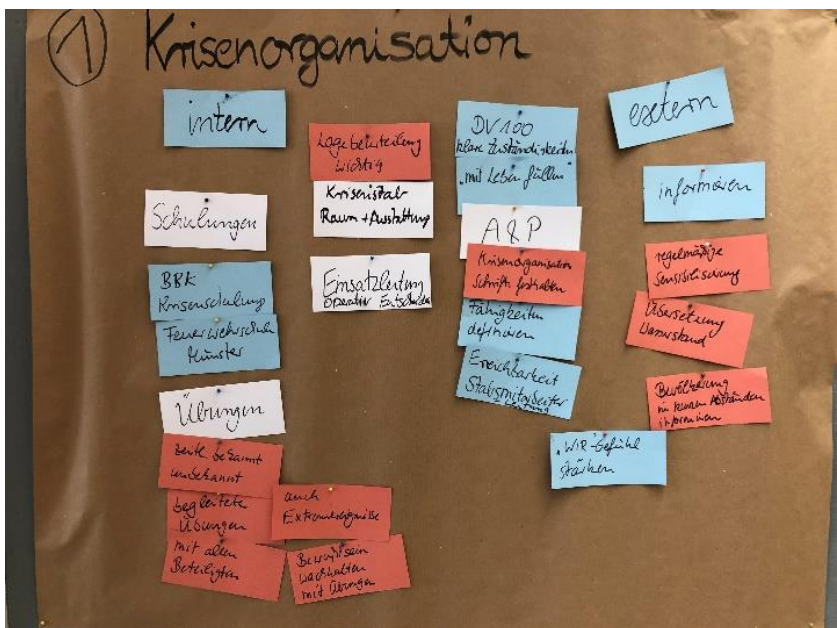 1 Krisenorganisation
intern
Schulungen
BBK
Krisenschulung
Feuerwehrschule
Münster
Übungen
zeitl. bekannt
unbekannt
begleitete
Übungen
mit allen
Beteiligten
auch
Extremereignisse
Bewußtsein
wachhalten
mit Übungen
Lagebeurteilung
wichtig
Krisenstab
Raum + Ausstattung
Einsatzleitung
operativ
DV 100
klare Zuständigkeiten
"mit Leben füllen"
A & P
Krisenorganisation
Schriftl. festhalten
Fähigkeiten
definieren
Erreichbarkeit
Stabsmitarbeiter
extern
informieren
regelmäßige
Sensibilisierung
Übersetzung
Warnstand
Bevölkerung
in kurzen Abständen
informieren
"WIR-Gefühl
stärken